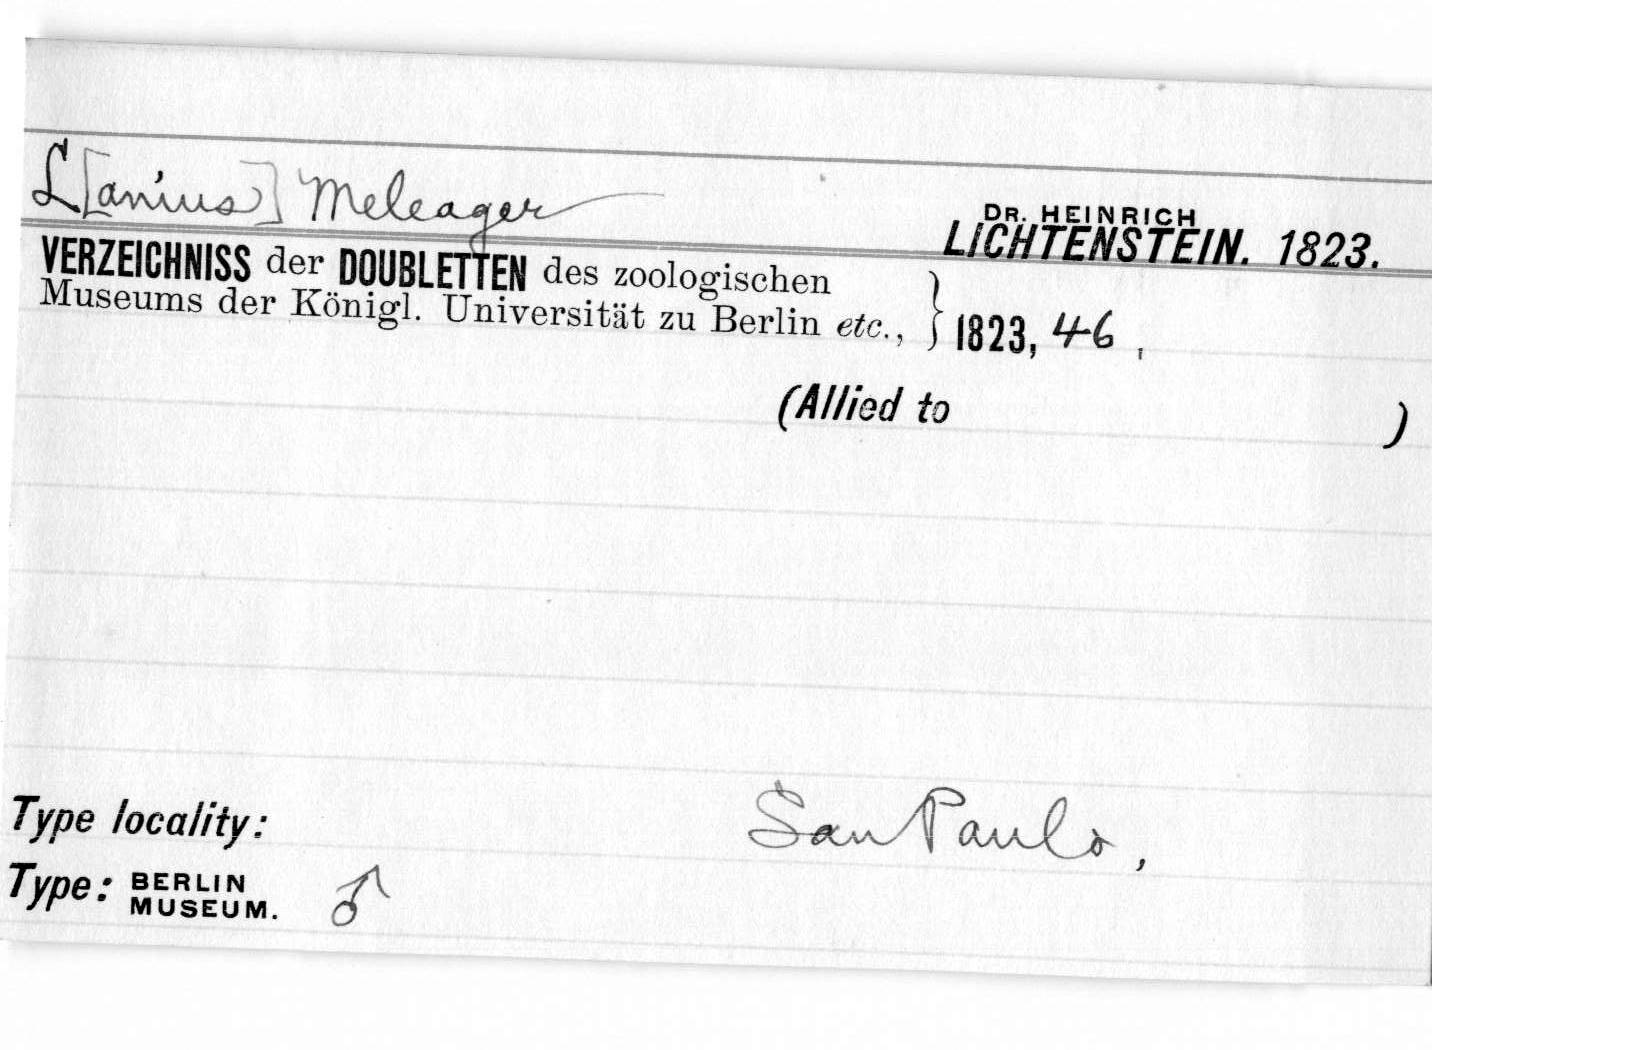 L[anius] Meleager
DR. HEINRICH
LICHTENSTEIN. 1823.
VERZEICHNISS der DOUBLETTEN des zoologischen
Museums der Königl. Universität zu Berlin etc., } 1823, 46,
(Allied to )
Type locality: San Paulo,
Type: BERLIN MUSEUM. ♂